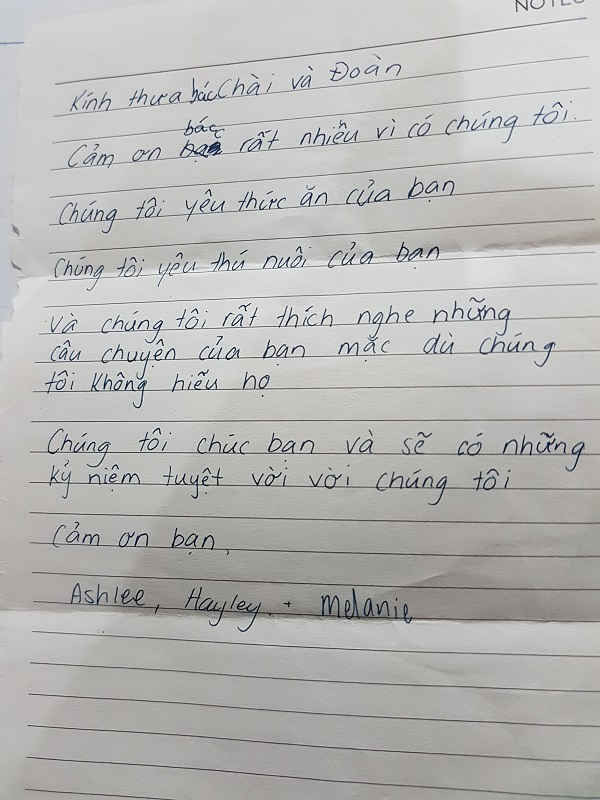 NOTES
Kính thưa bác Chài và Đoàn
Cảm ơn bác rất nhiều vì có chúng tôi.
Chúng tôi yêu thức ăn của bạn
Chúng tôi yêu thú nuôi của bạn
Và chúng tôi rất thích nghe những
câu chuyện của bạn mặc dù chúng
tôi không hiểu họ
Chúng tôi chúc bạn và sẽ có những
kỷ niệm tuyệt vời với chúng tôi
Cảm ơn bạn,
Ashlee, Hayley + Melanie